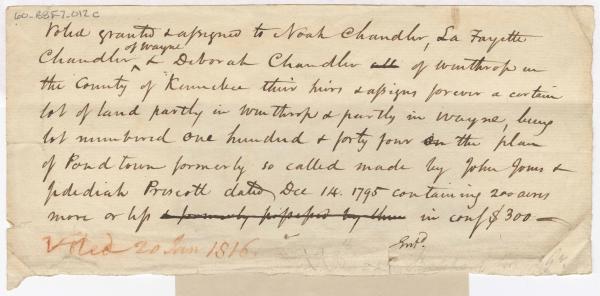 60-BBF7-012C
Voted granted & assigned to Noah Chandler, La Fayette
of Wayne
Chandler & Deborah Chandler all of Winthrop in
the County of Kennebec their heirs & assigns forever a certain
lot of land partly in Winthrop & partly in Wayne, being
lot numbered one hundred & forty four on the plan
of Pondtown formerly so called made by John Jones &
Jedediah Priscott dated Dec 14. 1795 containing 200 acres
more or less & formerly possessed by them in consr $300 —
Voted 20 Jan 1816.
Entd.